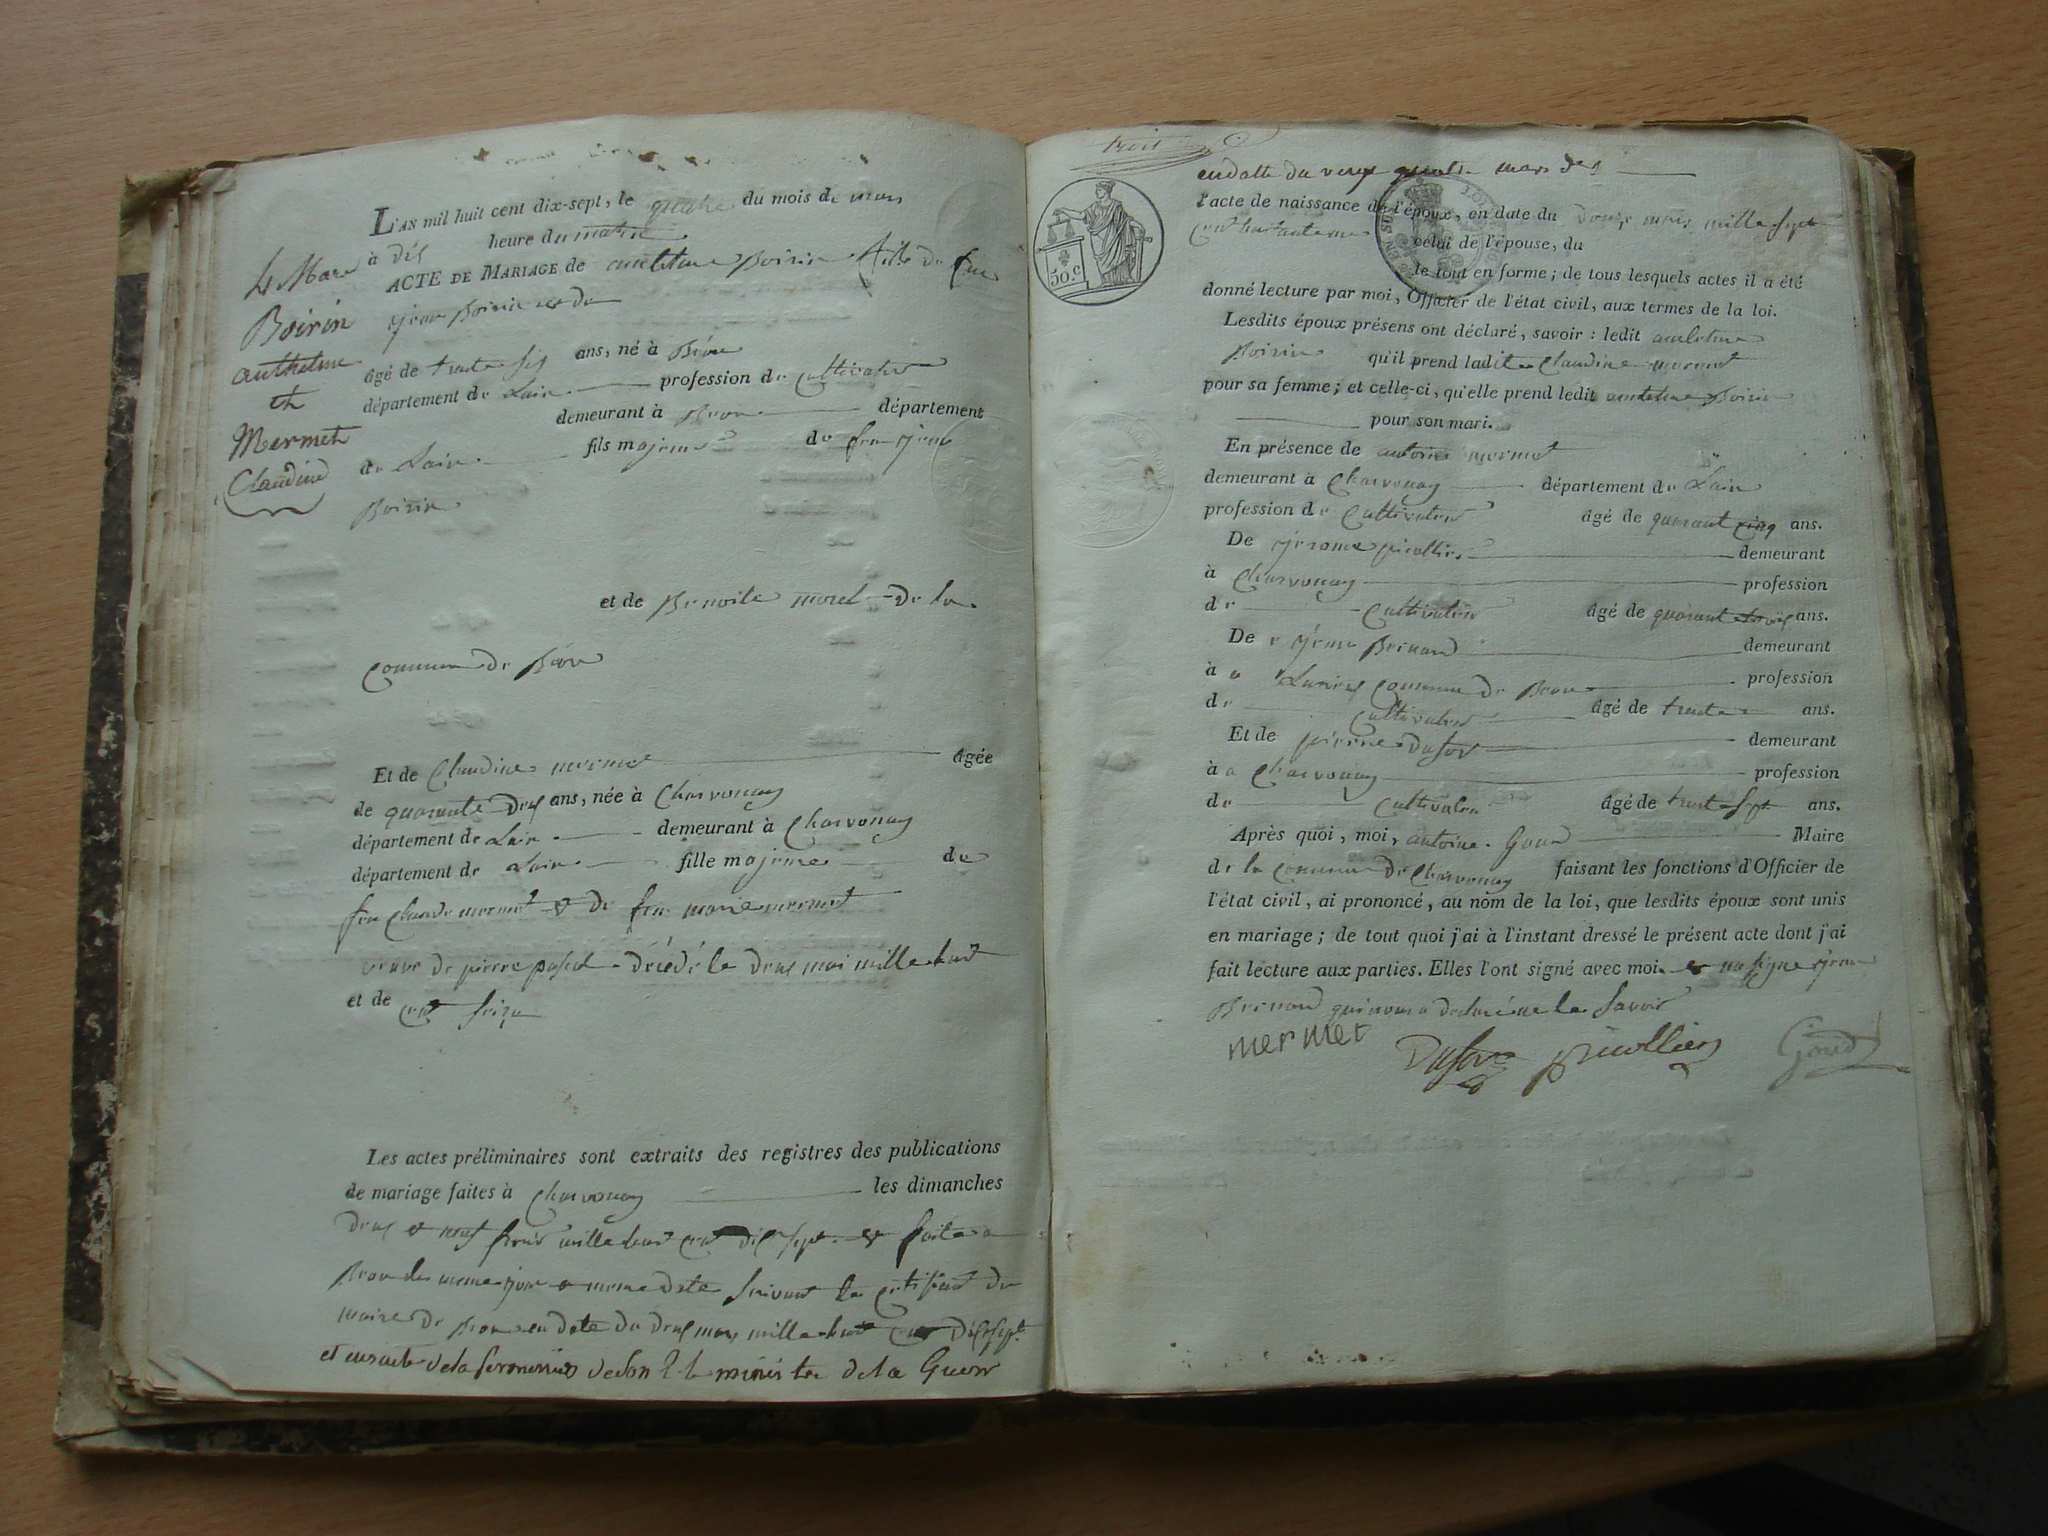 4 Mars
Boirin
anthelme
et
Mermet
Claudine
L'AN mil huit cent dix-sept, le quatre du mois de mars
à dix heure du matin
ACTE DE MARIAGE de antelme Boirin fils de feu
jean Boirin et de
âgé de trente six ans, né à Béon
département de Lain profession de Cultivateur
demeurant à Beon département
de Lain fils majeur de feu jean
Boirin
et de Benoite morel de la
Commune de Béon
Et de Claudine mermet âgée
de quarante deux ans, née à Charvonay
département de Lain demeurant à Charvonay
département de Lain fille majeure de
feu Claude mermet & de feu marie mermet
veuve de pierre pascal décédé le deux mai mille huit
et de cent seize
Les actes préliminaires sont extraits des registres des publications
de mariage faites à Charvonay les dimanches
deux et neuf mille huit cent dix sept & faite a
Beon les meme jour & meme date suivant le certificat du
maire de Beon en date du deux mars mille huit cent dix sept
et ensuite de la de son E. le ministre de la Guerre
en datte du mars de
l'acte de naissance de l'époux, en date du douze mars mille sept
cent celui de l'épouse, du
le tout en forme ; de tous lesquels actes il a été
donné lecture par moi, Officier de l'état civil, aux termes de la loi.
Lesdits époux présens ont déclaré, savoir : ledit antelme
Boirin qu'il prend ladite Claudine mermet
pour sa femme ; et celle-ci, qu'elle prend ledit antelme Boirin
pour son mari.
En présence de antoine mermet
demeurant à Charvonay département de Lain
profession de Cultivateur âgé de quarant cinq ans.
De jerome picollier demeurant
à Charvonay profession
de Cultivateur âgé de quarant trois ans.
De jean Bernard demeurant
à a Luirieu Commune de Beon profession
de Cultivateur âgé de trente ans.
Et de pierre Dufour demeurant
à a Charvonay profession
de Cultivateu âgé de trent sept ans.
Après quoi, moi, antoine Goud Maire
de la Commune de Charvonay faisant les fonctions d'Officier de
l'état civil, ai prononcé, au nom de la loi, que lesdits époux sont unis
en mariage ; de tout quoi j'ai à l'instant dressé le présent acte dont j'ai
fait lecture aux parties. Elles l'ont signé avec moi. na signe jean
Bernard qui nous a declaré ne le savoir
mermet Dufour picollier Goud
50.c